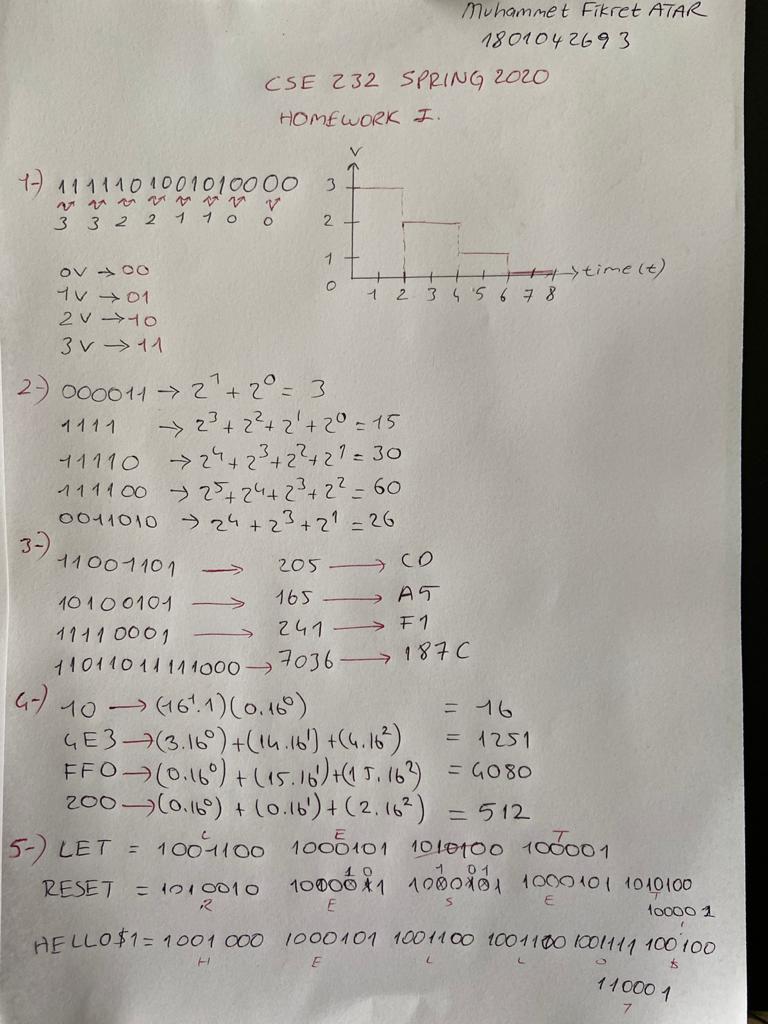 Muhammet Fikret ATAR
1801042693
CSE 232 SPRING 2020
HOMEWORK I.
1-) 1111101001010000
3 3 2 2 1 1 0 0
0V → 00
1V → 01
2V → 10
3V → 11
V
3
2
1
0
1 2 3 4 5 6 7 8
time(t)
2-) 000011 → 2^1 + 2^0 = 3
1111 → 2^3 + 2^2 + 2^1 + 2^0 = 15
11110 → 2^4 + 2^3 + 2^2 + 2^1 = 30
111100 → 2^5 + 2^4 + 2^3 + 2^2 = 60
0011010 → 2^4 + 2^3 + 2^1 = 26
3-)
11001101 → 205 → CD
10100101 → 165 → A5
11110001 → 241 → F1
11011011111000 → 7036 → 187C
4-) 10 → (16^1.1)(0.16^0) = 16
4E3 → (3.16^0) + (14.16^1) + (4.16^2) = 1251
FF0 → (0.16^0) + (15.16^1) + (15.16^2) = 4080
200 → (0.16^0) + (0.16^1) + (2.16^2) = 512
L E T
5-) LET = 1001100 1000101 1010100 100001
RESET = 1010010 1000101 1010011 1000101 1010100
R E S E T
100001
!
HELLO$1 = 1001000 1000101 1001100 1001100 1001111 100100
H E L L O $
110001
1